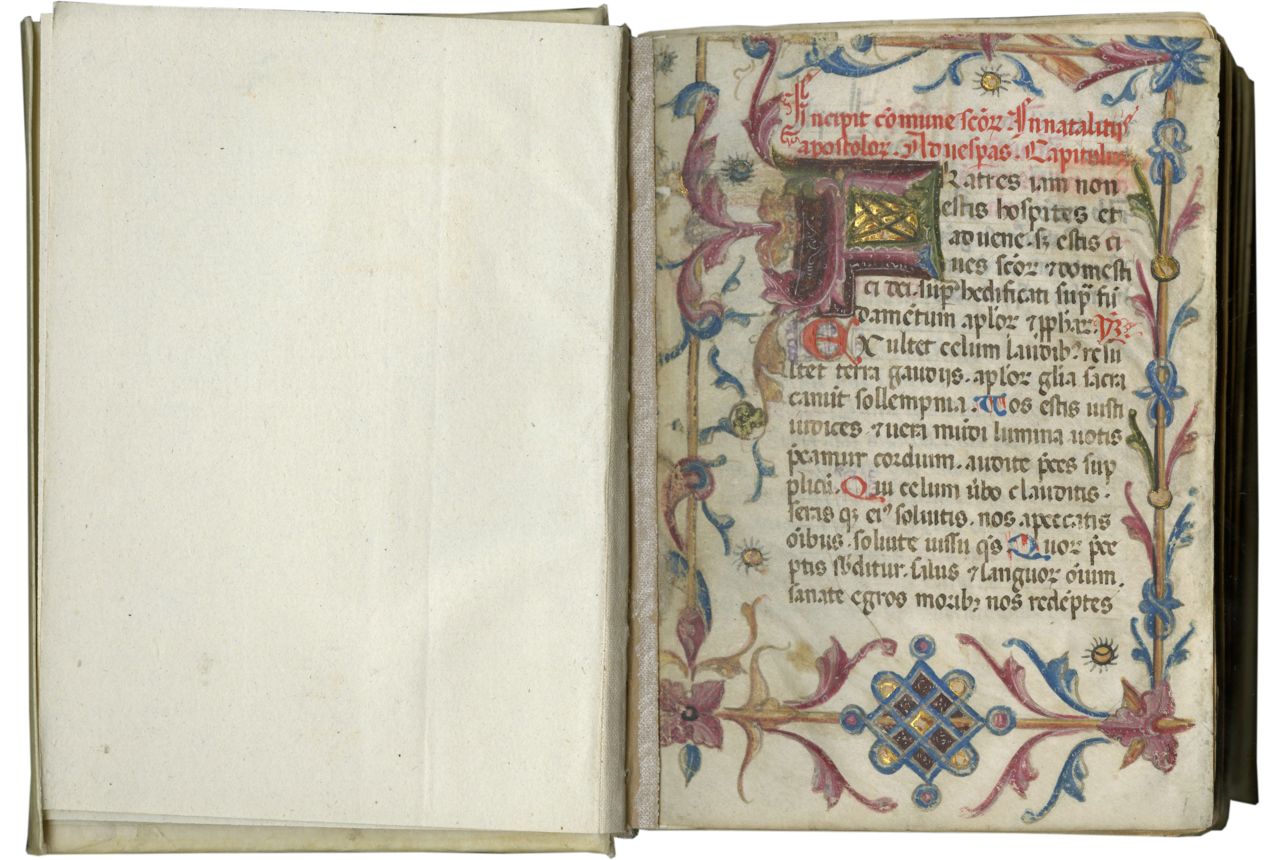 Incipit cōmune scōꝝ. In natalitiis
apostoloꝝ. Ad uesꝑas. Capitulum
FRatres iam non
estis hospites et
aduene. sꝫ estis ci
ues scōꝝ ⁊ domesti
ci dei. suꝑ hedificati suꝑ fū
damētum apl̄oꝝ ⁊ ꝓphaꝝ. Ym̄s
EXultet celum laudibꝫ resu
ltet terra gaudijs. apl̄oꝝ gl̄ia sacra
canūt sollempnia. Uos estis iusti
iudices ⁊ uera mūdi lumina uotis
p̄camur cordium. audite p̄ces sup
plicū. Qui celum ūbo clauditis.
seras qꝫ eiꝰ soluitis. nos a peccatis
oībus. soluite iussu q̄s Quoꝝ p̄ce
ptis sb̄ditur. salus ⁊ languor oīum.
sanate egros moribꝫ nos reddētes